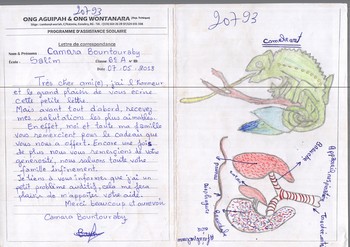 20793
ONG AGUIPAH & ONG WONTANARA
PROGRAMME D'ASSISTANCE SCOLAIRE
Lettre de correspondance
Nom & Prénoms Camara Bountouraby
Ecole : Salim Classe 6è A
Date 07-05-2018
Très cher ami(e), j'ai l'honneur
et le grand plaisir de vous écrire
cette petite lettre.
Mais avant tout d'abord, recevez
mes salutations les plus aimables.
En effet, moi et toute ma famille
vous remercions pour le cadeau que
vous nous a offert. Encore une fois
de plus nous vous remercions de votre
generosité, nous saluons toute votre
famille infiniment.
Je tiens à vous informer que j'ai un
petit problème auditif, cela me fera
plaisir de m'apporter votre aide.
Merci beaucoup d'avance
Camara Bountouraby
20793
Caméléon
Bronche